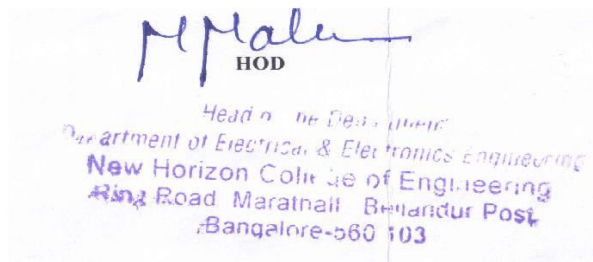 HOD
Head
Department of Electrical & Electronics Engineering
New Horizon College of Engineering
Ring Road Marathalli Bellandur Post,
Bangalore-560 103